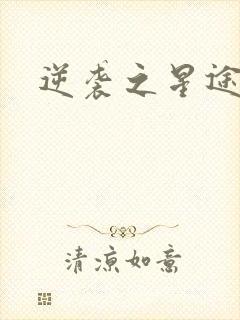 逆袭之星途
清凉如意